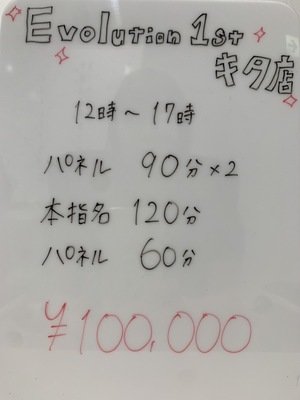 Evolution 1st
キタ店
12時～17時
パネル 90分×2
本指名 120分
パネル 60分
¥100,000